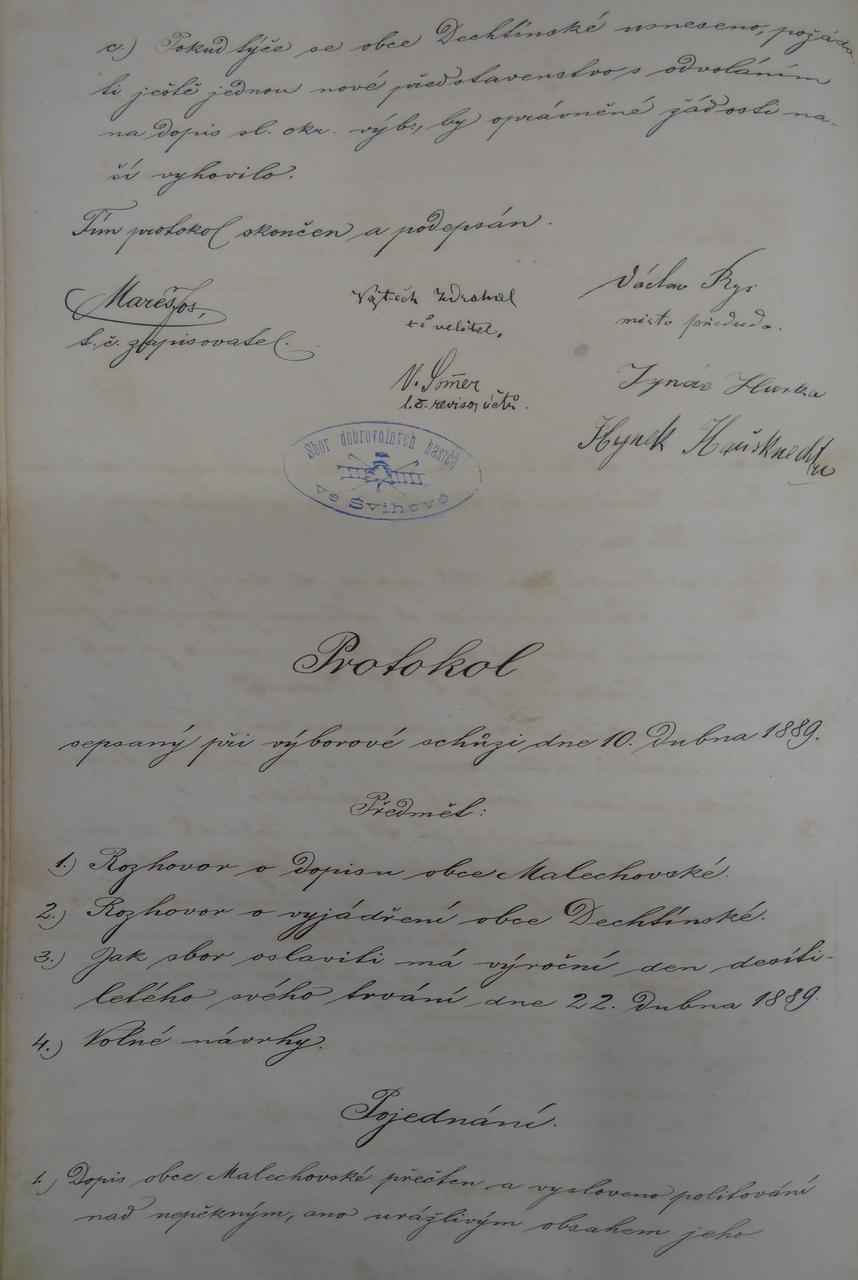 c.) Pokud týče se obce Dechtínské usneseno, požáda-
ti ještě jednou nové představenstvo s odvoláním
na dopis sl. okr. výb., by oprávněné žádosti na-
ší vyhovilo.
Tím protokol skončen a podepsán.
Mareš Jos,
t. č. zapisovatel.
Vojtěch Zdrahal
t č velitel,
V. Šomer
t. č. revisor účtů.
Václav Rys
místo předseda.
Ignác Hurka
Hynek Hausknecht
Sbor dobrovolných hasičů
ve Švihově
Protokol
sepsaný při výborové schůzi dne 10. dubna 1889.
Předmět:
1.) Rozhovor o dopisu obce Malechovské.
2.) Rozhovor o vyjádření obce Dechtínské.
3.) Jak sbor oslaviti má výroční den desíti-
letého svého trvání dne 22. dubna 1889.
4.) Volné návrhy.
Pojednání.
1.) Dopis obce Malechovské přečten a vysloveno politování
nad nepěkným, ano urážlivým obsahem jeho